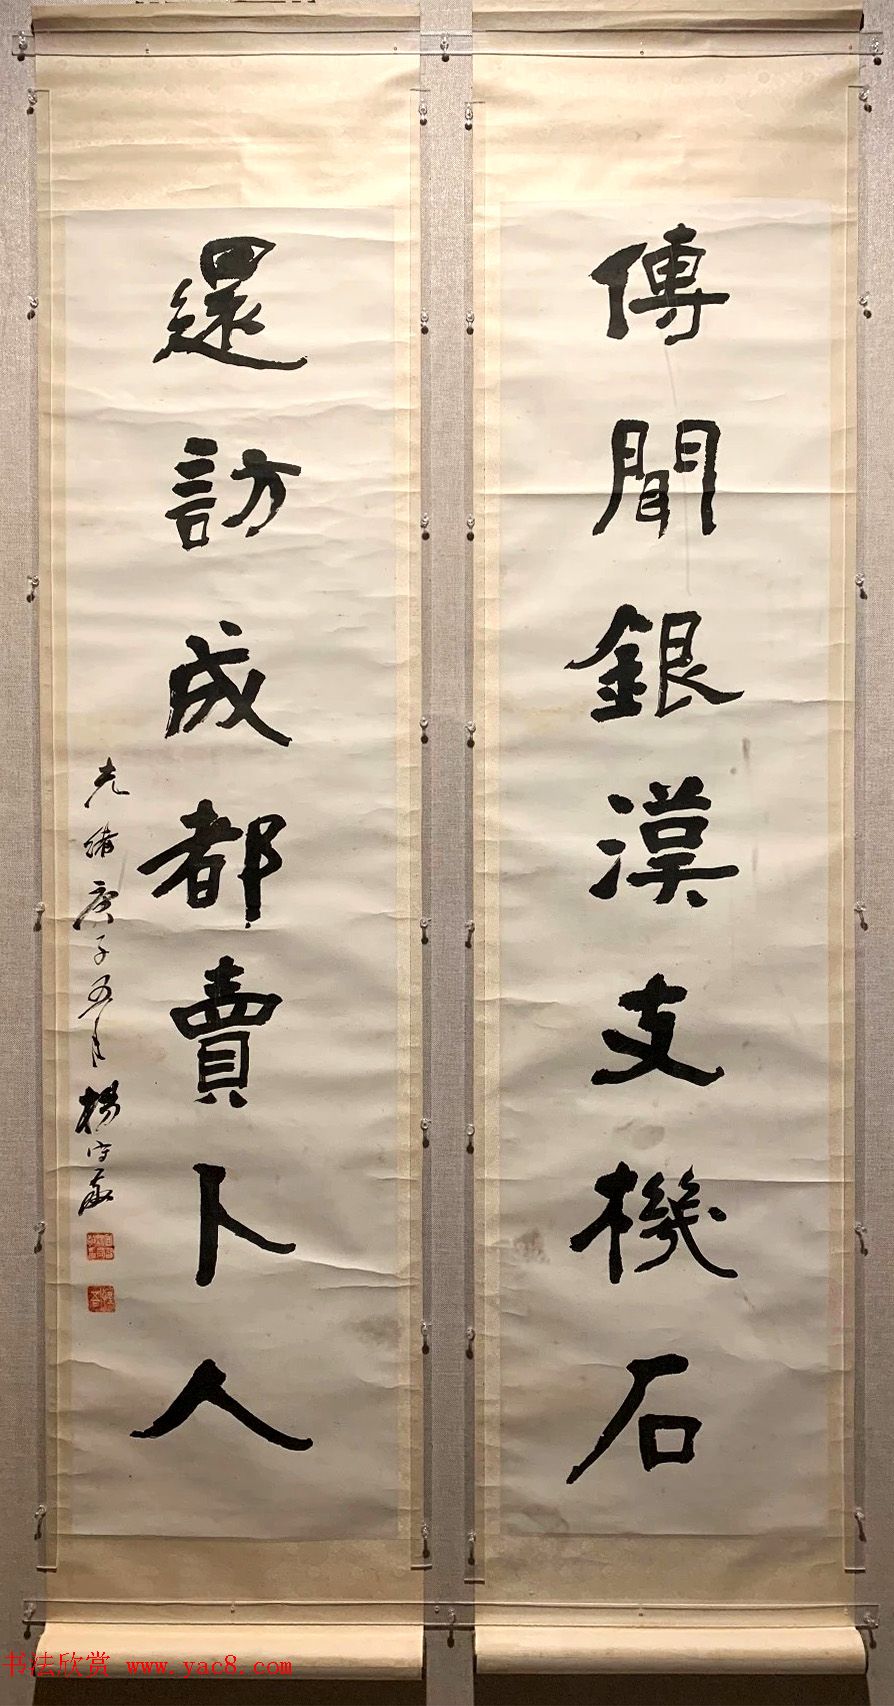 傳聞銀漢支機石
還訪成都賣卜人
光緒庚子五月楊守敬
书法欣赏 www.yac8.com